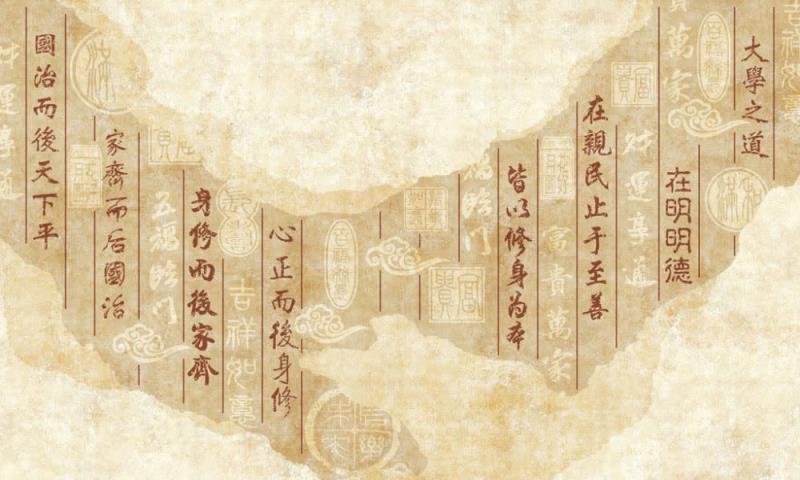 大學之道
在明明德
在親民止于至善
皆以修身為本
心正而後身修
身修而後家齊
家齊而后國治
國治而後天下平
吉祥如意
富貴萬家
財運亨通
五福臨門
吉祥如意
五福臨門